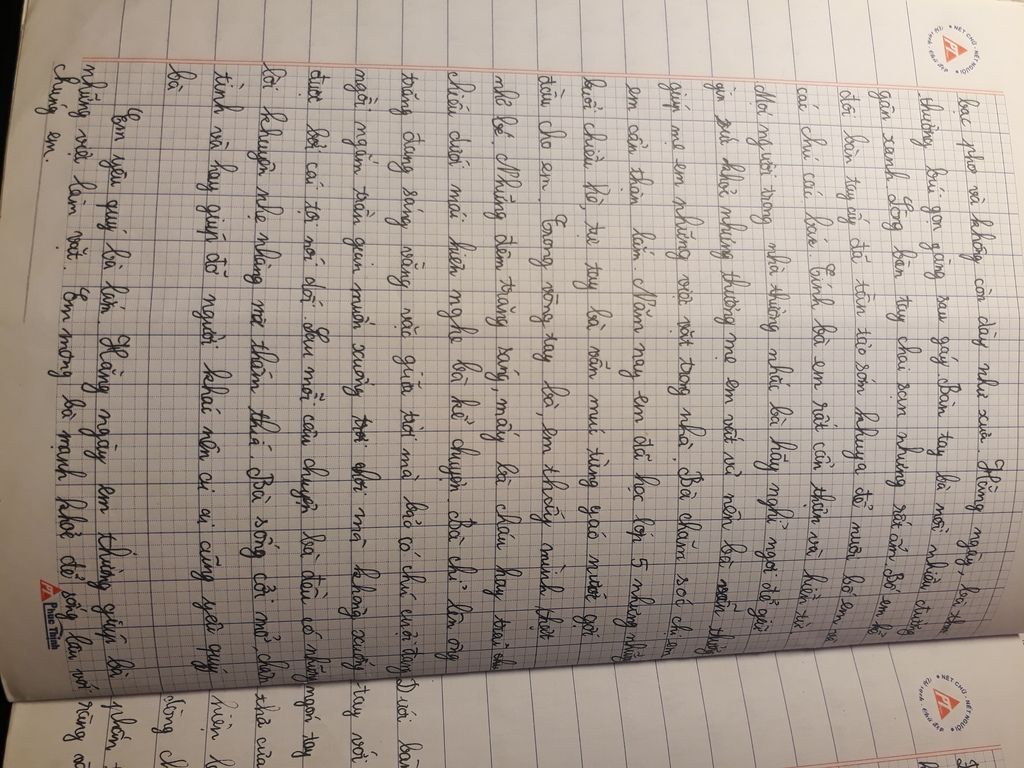 NÉT CHỮ - NẾT NGƯỜI
bạc phơ và không còn dày như xưa. Hằng ngày, bà
thường búi gọn gàng sau gáy. Bàn tay bà nổi nhiều đường
gân xanh. Lòng bàn tay chai sạn nhưng rất ấm. Bố em kể
đôi bàn tay ấy đã tần tảo sớm khuya để nuôi bố em và
các chú các bác. Tính bà em rất cẩn thận và hiền từ.
Mọi người trong nhà thường nhắc bà hãy nghỉ ngơi để giữ
gìn sức khỏe nhưng thương mẹ em vất vả nên bà vẫn thường
giúp mẹ em những việc vặt trong nhà. Bà chăm sóc chị em
em cẩn thận lắm. Năm nay em đã học lớp 5 nhưng những
buổi chiều hè, tự tay bà vẫn múc từng gáo nước gội
đầu cho em. Trong vòng tay bà, em thấy mình thật
nhỏ bé. Những đêm trăng sáng, mấy bà cháu hay trải
chiếu dưới mái hiên nghe bà kể chuyện. Bà chỉ lên ông
trăng đang sáng vằng vặc giữa trời mà bảo có chú cuội đang
ngồi ngắm trần gian muốn xuống chơi mà không xuống
được bởi cái tội nói dối. Sau mỗi câu chuyện bà đều có những
lời khuyên nhẹ nhàng mà thấm thía. Bà sống cởi mở, chân
tình và hay giúp đỡ người khác nên ai ai cũng yêu quý
bà
Em yêu quý bà lắm. Hằng ngày em thường giúp bà
những việc làm vặt. Em mong bà mạnh khỏe để sống lâu với
chúng em.
PHÚC THỊNH
NÉT CHỮ - NẾT NGƯỜI
Dưới
tay với
ngón tay
thở của
hiện